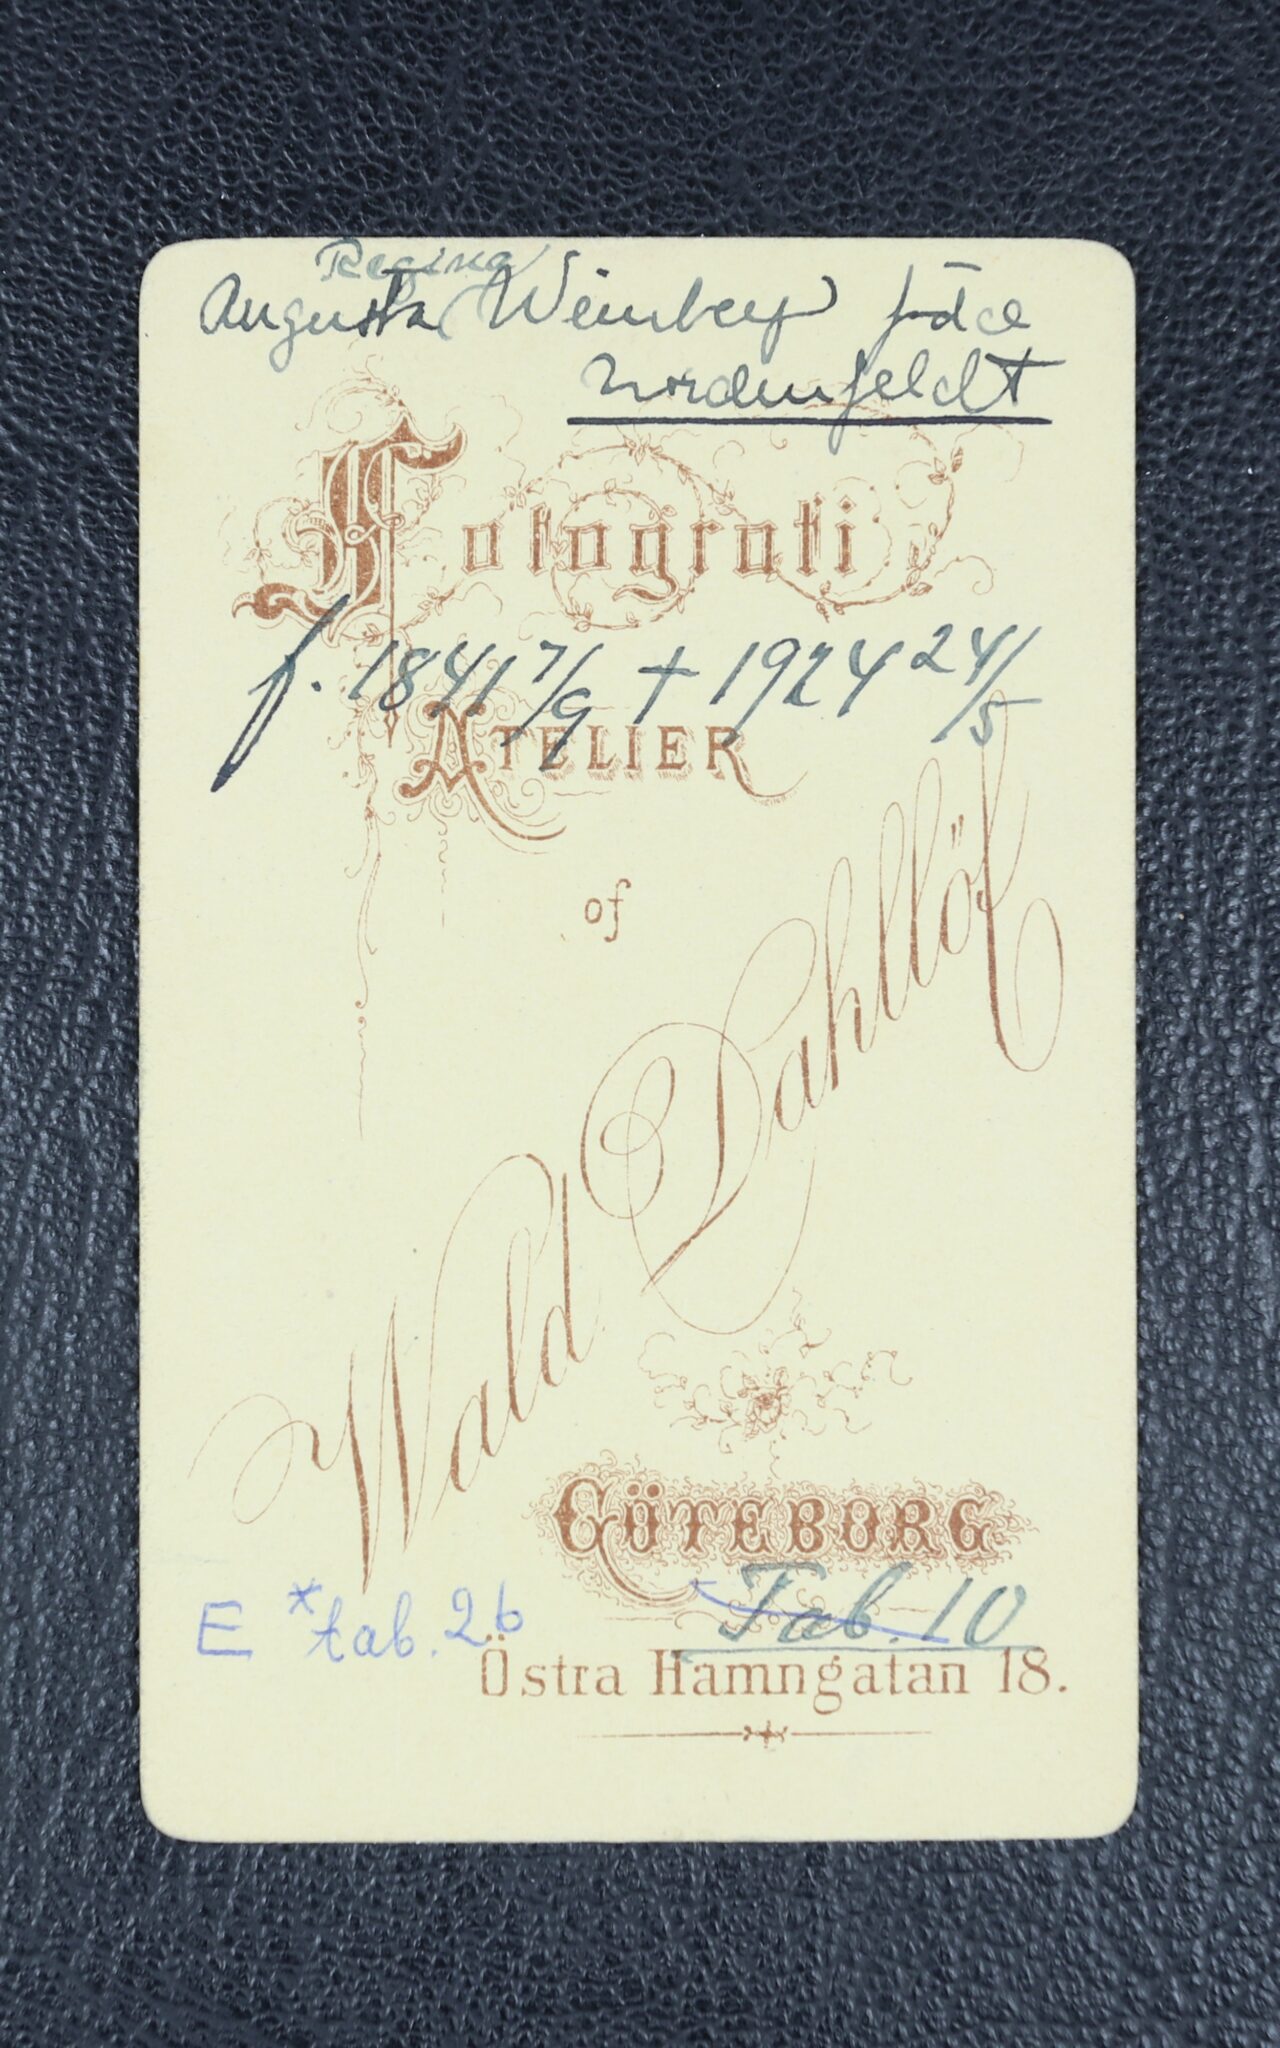 Regina
Augusta Weinberg född
Nordenfeldt
Fotografi
f. 1841 7/9 + 1924 24/5
ATELIER
of
Wald Dahllöf
GÖTEBORG
E * tab. 26
Tab. 10
Östra Hamngatan 18.